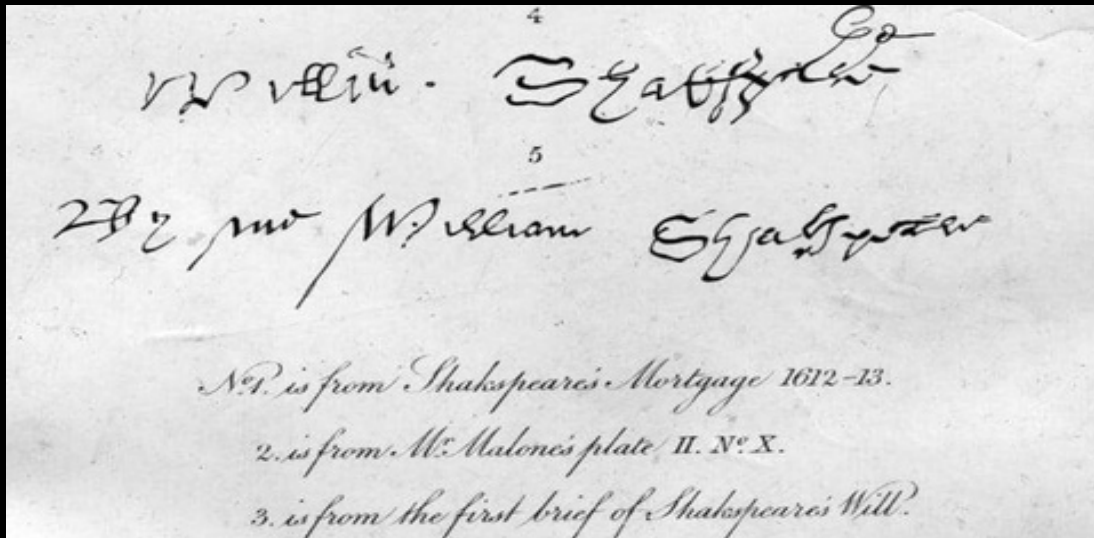 4
Willm. Shakspere
5
By me William Shakspeare
No. 1. is from Shakspeare's Mortgage 1612-13.
2. is from Mr. Malone's plate II. No. X.
3. is from the first brief of Shakspeare's Will.